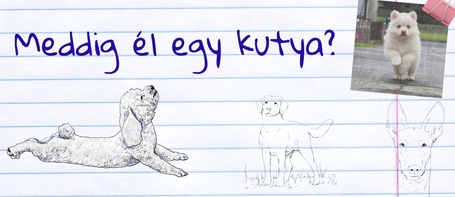 Meddig él egy kutya?